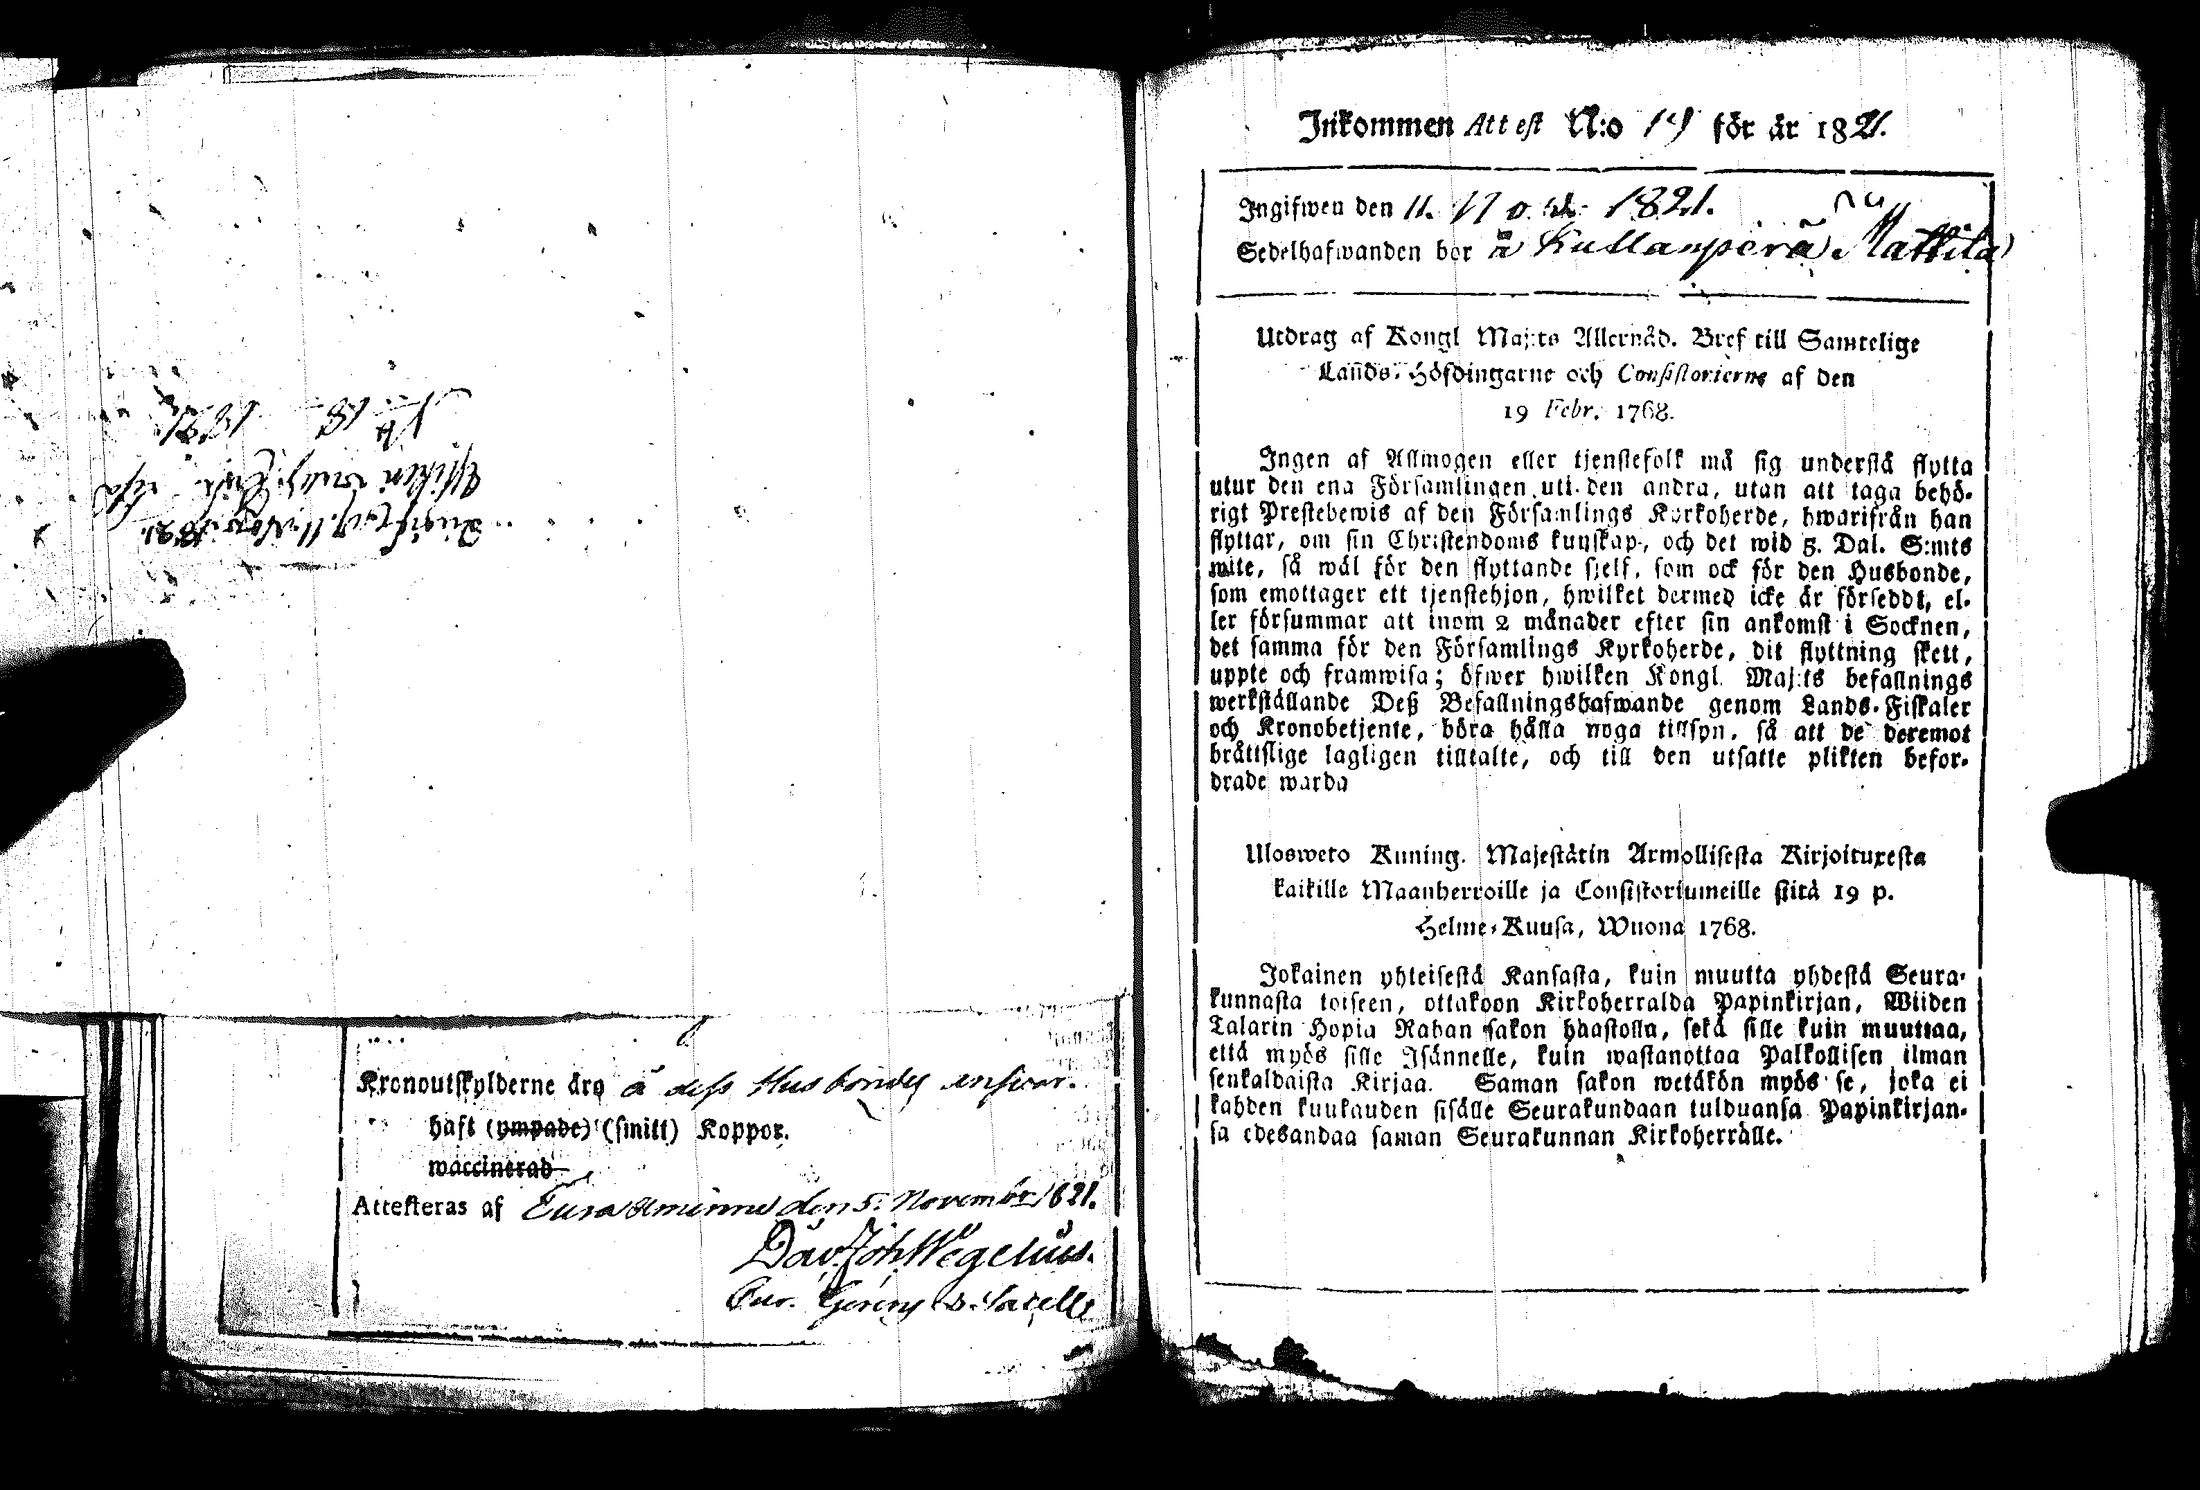 No 18 1821
Ingifv. d. 11 Nov. 1821.
Kronoutskylderne äro å dess Husbondes answar.
haft (ympade) (smitt) Koppor.
waccinerad
Attesteras af Eura Åminne den 5. Novembr 1821.
Dav. Joh. Wegelius.
Inkommen Attest N:o 19 för år 1821.
Ingifwen den 11. Nov. 1821.
Sedelhafwanden bor å Kullanperä Mattila
Utdrag af Kongl Maj:ts Allernåd. Bref till Samtelige
Lands-Höfdingarne och Consistorierne af den
19 Febr. 1768.
Ingen af Allmogen eller tjenstefolk må sig understå flytta
utur den ena Församlingen uti den andra, utan att taga behö-
rigt Prestebewis af den Församlings Kyrkoherde, hwarifrån han
flyttar, om sin Christendoms kunskap, och det wid 5. Dal. S:mts
wite, så wäl för den flyttande sjelf, som ock för den Husbonde,
som emottager ett tjenstehjon, hwilket dermed icke är förseddt, el-
ler försummar att inom 2 månader efter sin ankomst i Socknen,
det samma för den Församlings Kyrkoherde, dit flyttning skett,
uppte och framwisa; öfwer hwilken Kongl. Maj:ts befallnings
werkställande Deß Befallningshafwande genom Lands-Fiskaler
och Kronobetjente, böra hålla noga tillsyn, så att de deremot
bråttslige lagligen tilltalte, och till den utsatte plikten befor-
drade warda
Ulosweto Kuning. Majestätin Armollisesta Kirjoituxesta
kaikille Maanherroille ja Consistoriumeille siitä 19 p.
Helme-Kuusa, Wuona 1768.
Jokainen yhteisestä Kansasta, kuin muutta yhdestä Seura-
kunnasta toiseen, ottakoon Kirkoherralda Papinkirjan, Wiiden
Talarin Hopia Rahan sakon haastolla, sekä sille kuin muuttaa,
että myös sille Isännelle, kuin wastanottaa Palkollisen ilman
senkaldaista Kirjaa. Saman sakon wetäkön myös se, joka ei
kahden kuukauden sisälle Seurakundaan tulduansa Papinkirjan-
sa edesandaa saman Seurakunnan Kirkoherrälle.